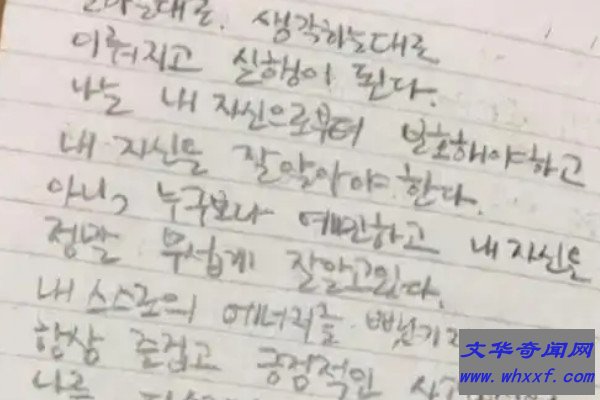 생각하는대로
이뤄지고 실행이 된다.
나는 내 자신으로부터 보호해야하고
내 자신을 잘알아야 한다.
아니, 누구보다 예민하고 내 자신은
정말 무섭게 잘알고있다.
내 스스로의 에너지를 뺏기지
항상 즐겁고 긍정적인
나를
文华奇闻网
www.whxxf.com